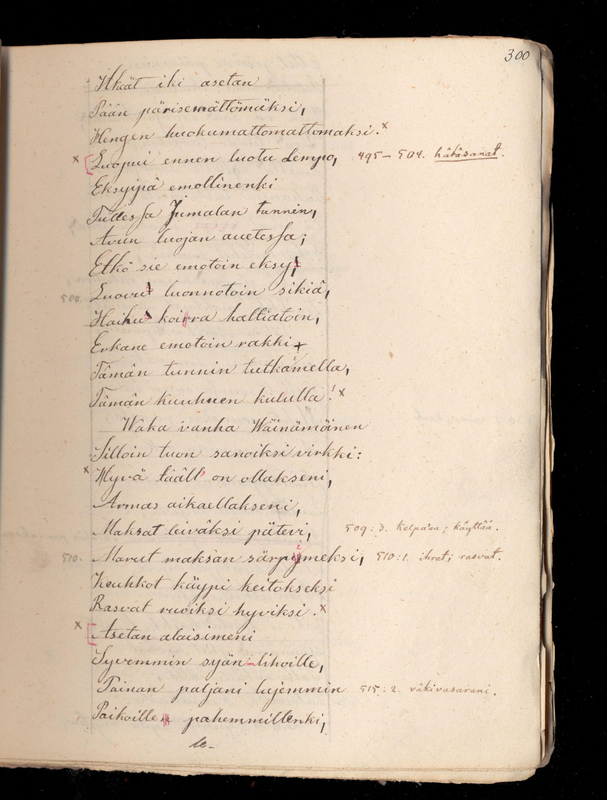 300
Ikäät iki asetan
Pään pärisemättömäksi,
Hengen huokumattomattomaksi.x
x [Luopui ennen luotu Lempo, 495–504. hätäsanat.
Eksyipä emollinenki
Tullessa Jumalan tunnin,
Avun luojan auetessa;
Etkö sie emotoin eksy,
500. Luovu luonnotoin sikiä,
Haihu koira haltiatoin,
Erkane emotoin rakki
Tämän tunnin tutkamella,
Tämän kuuhuen kululla! x
Waka vanha Wäinämöinen
Silloin tuon sanoiksi virkki:
x Hyvä tääll' on ollakseni,
Armas aikaellakseni,
Maksat leiväksi pätevi, 509: 3. kelpaa; käyttää.
510. Marut maksan särpimeksi, 510: 1. ihrat; rasvat.
Keuhkot käypi keitokseksi
Rasvat ruoiksi hyviksi. x
x [Asetan alaisimeni
Syvemmin syän-lihoille,
Painan paljani lujemmin 515: 2. väkivasarani.
Paikoille pahemmillenki,
le-